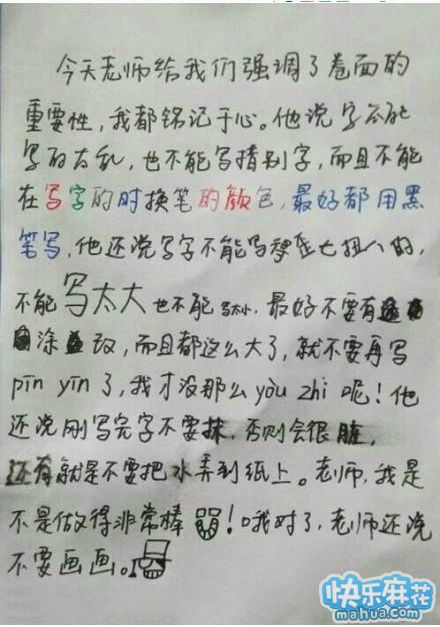 今天老师给我们强调了卷面的
重要性,我都铭记于心。他说字不能
写的太乱,也不能写猜别字,而且不能
在写字的时换笔的颜色,最好都用黑
笔写,他还说写字不能写歪七扭八的,
不能写太大也不能写太小,最好不要有
涂改,而且都这么大了,就不要再写
pīn yīn了,我才没那么yòu zhi呢!他
还说刚写完字不要抹,否则会很脏,
还有就是不要把水弄到纸上。老师,我是
不是做得非常棒!哦对了,老师还说
不要画画。
快乐麻花
mahua.com